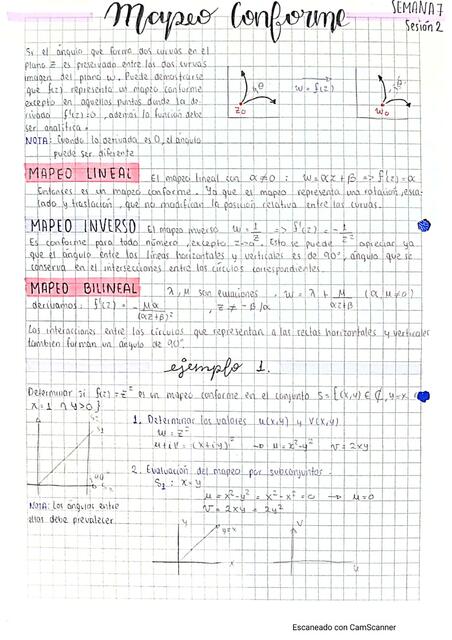 Mapeo Conforme
SEMANA 7
Sesión 2
Si el ángulo que forma dos curvas en el
plano z es preservado entre las dos curvas
imagen del plano w. Puede demostrarse
que f(z) representa un mapeo conforme
excepto en aquellos puntos donde la de-
rivada f'(z)=0, además la función debe
ser analítica.
NOTA: Cuando la derivada es 0, el ángulo
puede ser diferente
θ
z₀
w = f(z)
w₀
MAPEO LINEAL El mapeo lineal con α≠0 : w=αz+β => f'(z)=α
Entonces es un mapeo conforme. Ya que el mapeo representa una rotación, esca-
lado y traslación, que no modifican la posición relativa entre las curvas.
MAPEO INVERSO El mapeo inverso w=1/z => f'(z) = -1/z²
Es conforme para todo número, excepto z=0. Esto se puede apreciar ya
que el ángulo entre las líneas horizontales y verticales es de 90°, ángulo que se
conserva en el intersecciones entre los círculos correspondientes.
MAPEO BILINEAL λ, μ son ecuaciones, w = λ + μ/(αz+β) (α, μ≠0)
derivamos: f'(z) = - μα/(αz+β)² , z ≠ -β/α
Las interacciones entre los círculos que representan a las rectas horizontales y verticales
también forman un ángulo de 90°.
ejemplo 1.
Determinar si f(z)=z² es un mapeo conforme en el conjunto S={(x,y) ∈ ₵, y=x,
x=1 ∩ y>0}
1. Determinar los valores u(x,y) y v(x,y)
w = z²
u+iv = (x+iy)² → u=x²-y² v=2xy
2. Evaluación del mapeo por subconjuntos.
S₁ : x=y
u = x²-y² = x²-x² = 0 → u=0
v = 2xy = 2y²
NOTA: Los ángulos entre
ellos debe prevalecer
y
y=x
x
v
u
Escaneado con CamScanner